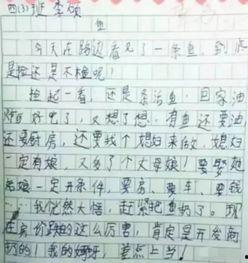 四(3)班 李颂
鱼
今天在路边看见了一条鱼，到底
是捡还是不捡呢！
捡起一看，还是条活鱼，回家油
炸好吧了，又想了想，有鱼还要油
还要厨房，还要找个媳妇来做，媳妇
一定有娘，又多了个丈母娘！要娶媳
丈母娘一定开条件，要房、要车、要钱
……我恍然大悟，赶紧把鱼扔了。现
在房价涨的这么厉害，肯定是开发商
扔的！我的妈呀，差点上当！